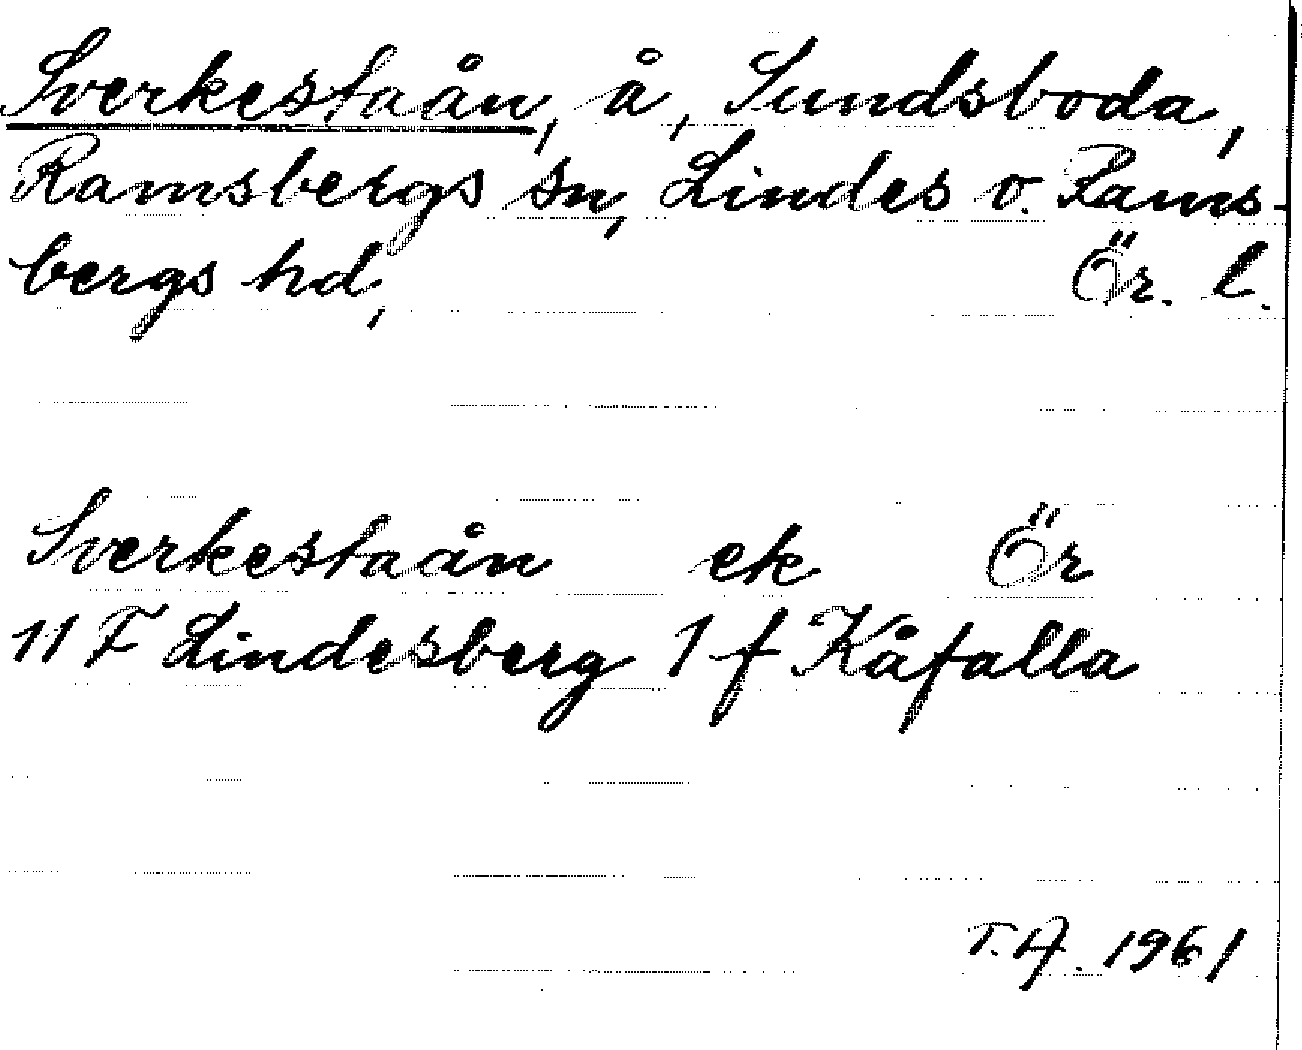 Sverkestaån, å, Sundsboda,
Ramsbergs sn, Lindes o. Rams-
bergs hd, Ör. l.
Sverkestaån ek Ör
11 F Lindesberg 1 f Kåfalla
T.A. 1961